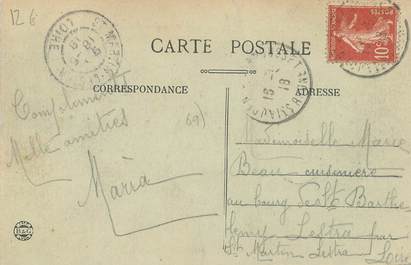 12 €
LOIRE
10
CARTE POSTALE
CORRESPONDANCE
ADRESSE
Compliments
Mille amitiés
69)
Maria
Mademoiselle Marie
Beau cuisinière
au bourg St Barthe
lemy Lestra par
St Martin Lestra Loire
B&G